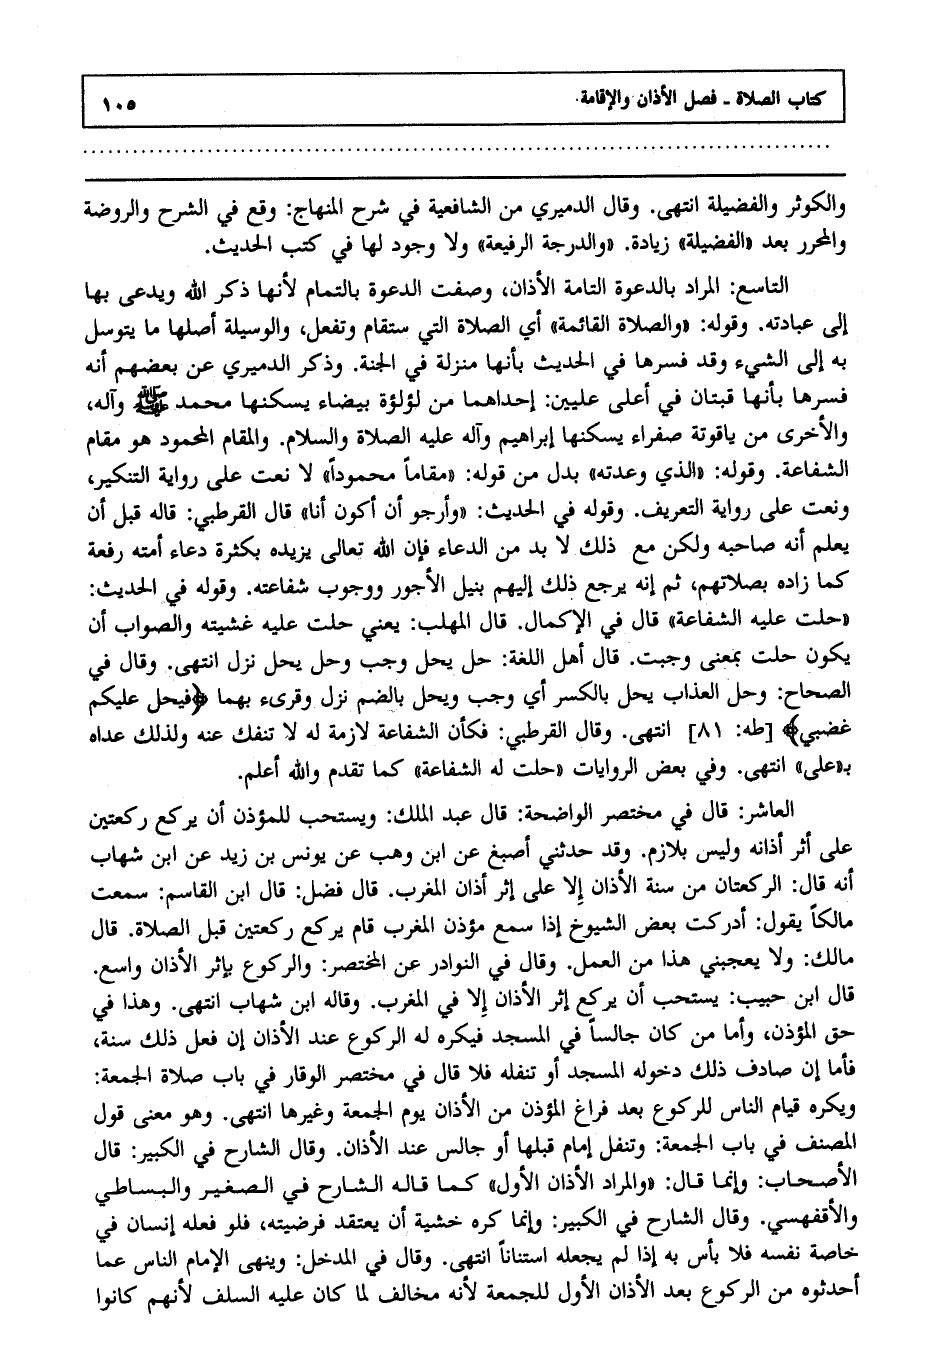 كتاب الصلاة ـ فصل الأذان والإقامة
١٠٥
والكوثر والفضيلة انتهى. وقال الدميري من الشافعية في شرح المنهاج: وقع في الشرح والروضة
والمحرر بعد «الفضيلة» زيادة. «والدرجة الرفيعة» ولا وجود لها في كتب الحديث.
التاسع: المراد بالدعوة التامة الأذان، وصفت الدعوة بالتمام لأنها ذكر الله ويدعى بها
إلى عبادته. وقوله: «والصلاة القائمة» أي الصلاة التي ستقام وتفعل، والوسيلة أصلها ما يتوسل
به إلى الشيء وقد فسرها في الحديث بأنها منزلة في الجنة. وذكر الدميري عن بعضهم أنه
فسرها بأنها قبتان في أعلى عليين: إحداهما من لؤلؤة بيضاء يسكنها محمد ﷺ وآله،
والأخرى من ياقوتة صفراء يسكنها إبراهيم وآله عليه الصلاة والسلام. والمقام المحمود هو مقام
الشفاعة. وقوله: «الذي وعدته» بدل من قوله: «مقاماً محموداً» لا نعت على رواية التنكير،
ونعت على رواية التعريف. وقوله في الحديث: «وأرجو أن أكون أنا» قال القرطبي: قاله قبل أن
يعلم أنه صاحبه ولكن مع ذلك لا بد من الدعاء فإن الله تعالى يزيده بكثرة دعاء أمته رفعة
كما زاده بصلاتهم، ثم إنه يرجع ذلك إليهم بنيل الأجور ووجوب شفاعته. وقوله في الحديث:
«حلت عليه الشفاعة» قال في الإكمال. قال المهلب: يعني حلت عليه غشيته والصواب أن
يكون حلت بمعنى وجبت. قال أهل اللغة: حل يحل وجب وحل يحل نزل انتهى. وقال في
الصحاح: وحل العذاب يحل بالكسر أي وجب ويحل بالضم نزل وقرىء بهما ﴿فيحل عليكم
غضبي﴾ [طه: ٨١] انتهى. وقال القرطبي: فكأن الشفاعة لازمة له لا تنفك عنه ولذلك عداه
بـ«على» انتهى. وفي بعض الروايات «حلت له الشفاعة» كما تقدم والله أعلم.
العاشر: قال في مختصر الواضحة: قال عبد الملك: ويستحب للمؤذن أن يركع ركعتين
على أثر أذانه وليس بلازم. وقد حدثني أصبغ عن ابن وهب عن يونس بن زيد عن ابن شهاب
أنه قال: الركعتان من سنة الأذان إلا على إثر أذان المغرب. قال فضل: قال ابن القاسم: سمعت
مالكاً يقول: أدركت بعض الشيوخ إذا سمع مؤذن المغرب قام يركع ركعتين قبل الصلاة. قال
مالك: ولا يعجبني هذا من العمل. وقال في النوادر عن المختصر: والركوع بإثر الأذان واسع.
قال ابن حبيب: يستحب أن يركع إثر الأذان إلا في المغرب. وقاله ابن شهاب انتهى. وهذا في
حق المؤذن، وأما من كان جالساً في المسجد فيكره له الركوع عند الأذان إن فعل ذلك سنة،
فأما إن صادف ذلك دخوله المسجد أو تنفله فلا قال في مختصر الوقار في باب صلاة الجمعة:
ويكره قيام الناس للركوع بعد فراغ المؤذن من الأذان يوم الجمعة وغيرها انتهى. وهو معنى قول
المصنف في باب الجمعة: وتنفل إمام قبلها أو جالس عند الأذان. وقال الشارح في الكبير: قال
الأصحاب: وإنما قال: «والمراد الأذان الأول» كما قاله الشارح في الصغير والبساطي
والأقفهسي. وقال الشارح في الكبير: وإنما كره خشية أن يعتقد فرضيته، فلو فعله إنسان في
خاصة نفسه فلا بأس به إذا لم يجعله استناناً انتهى. وقال في المدخل: وينهى الإمام الناس عما
أحدثوه من الركوع بعد الأذان الأول للجمعة لأنه مخالف لما كان عليه السلف لأنهم كانوا